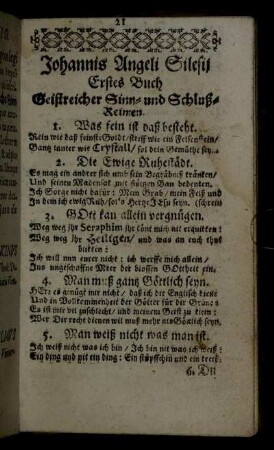 21
Johannis Angeli Silesij
Erstes Buch
Geistreicher Sinn- und Schluß-
Reimen.
1. Was fein ist daß besteht.
Rein wie daß feinste Goldt, steiff wie ein Felsenstein,
Gantz lauter wie Crystall, sol dein Gemüthe seyn.
2. Die Ewige Ruhestädt.
Es mag ein andrer sich umb sein Begräbniß kränken,
Und seinen Madensak mit stoltzen Bau bedenken.
Ich Sorge nicht dafür: Mein Grab, mein Felß und
schrein
In dem ich ewig Ruh, sol's Hertze JEsu seyn.
3. GOtt kan allein vergnügen.
Weg weg ihr Seraphim ihr könt mich nit erquikken:
Weg weg ihr Heiligen, und was an euch thut
blikken:
Ich will nun eurer nicht: ich werffe mich allein,
Ins ungeschaffne Meer der blossen GOttheit ein.
4. Man muß gantz Göttlich seyn.
HErr es genügt mir nicht, daß ich dir Englisch diene
Und in Vollkommenheit der Götter für dir Grüne:
Es ist mir vil zuschlecht, und meinem Geist zu klein:
Wer Dir recht dienen wil muß mehr als Göttlich seyn.
5. Man weiß nicht was man ist.
Ich weiß nicht was ich bin, Ich bin nit was ich weiß:
Ein ding und nit ein ding: Ein stüpffchin und ein kreiß.